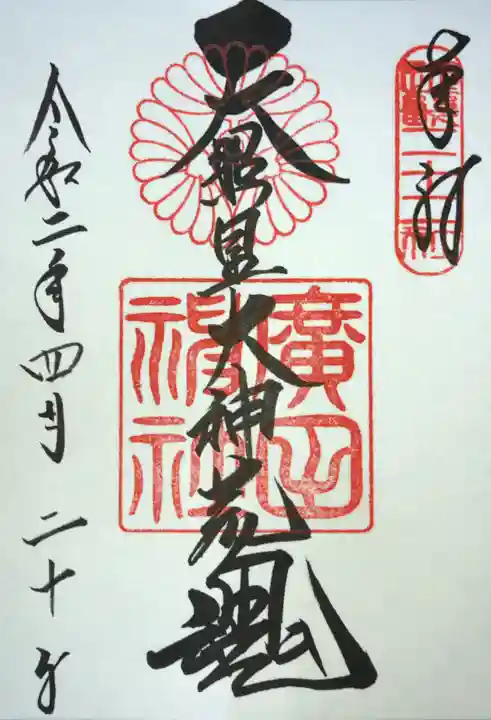 奉拝
二十二社
天照皇大神荒魂
廣田神社
令和二年四月二十日